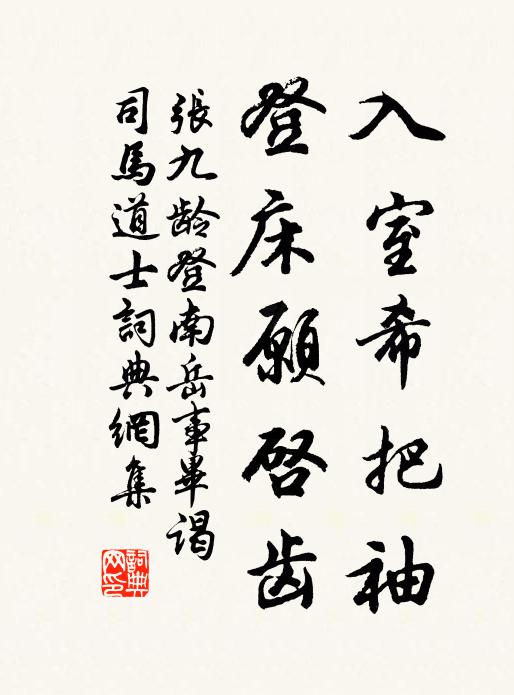 入室希把袖
登床願启齿
張九龄登南岳事畢谒
司馬道士詞典網集
詞典网印